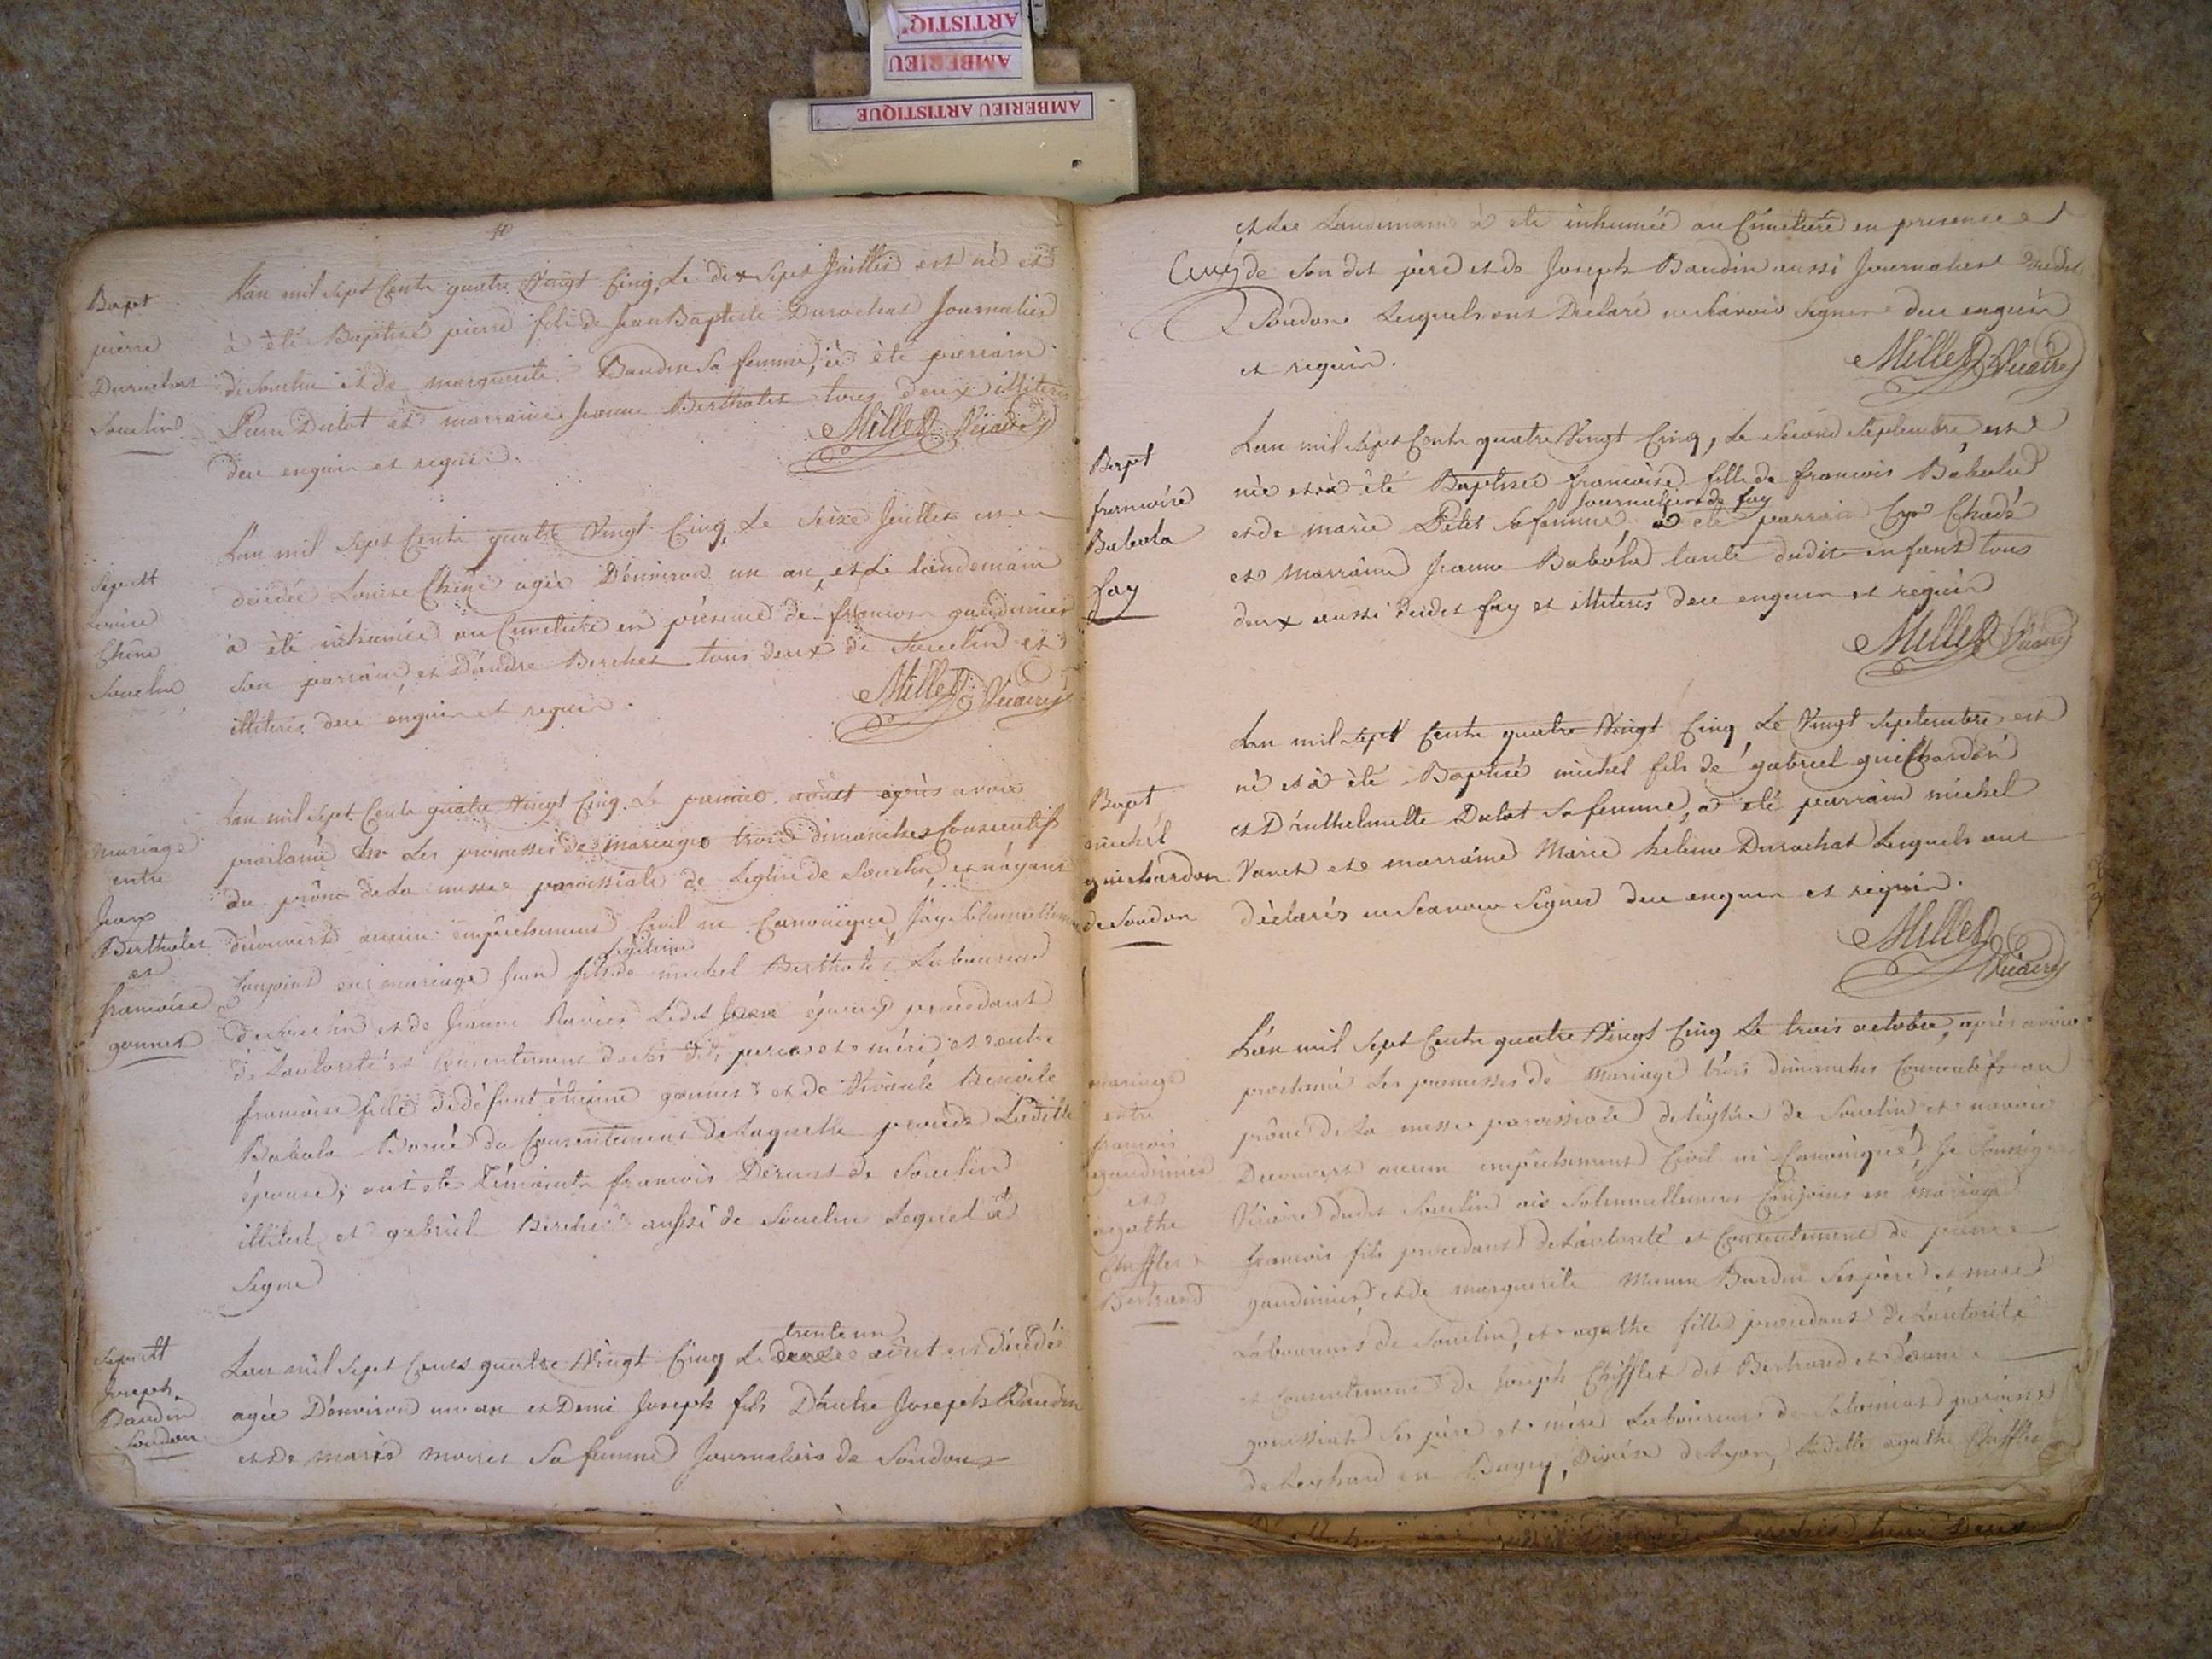 ARTISTIQ'
AMBERIEU
AMBERIEU ARTISTIQUE
Bapt
pierre
Durochat
Souclin
Lan mil sept Cents quatre Vingt Cinq, Le dix sept Juillet est né et
à été Baptisé pierre fils de Jean Baptiste Durochat Journalier
de Souclin et de marguerite Baudin sa femme, à été parrain
Dulot et marraine Jeanne Bertholet tous deux illiteres
deu enquis et requis.
Millet Vicaire
Sepult
Louise
Chêne
Souclin
Lan mil sept Cents quatre Vingt Cinq, Le Seize Juillet est
décédée Louise Chêne agée D'environ un an, et Le landemain
à été inhumée au Cimetiere en présence de francois gaudinier
son parrain, et D'andre Berchet tous deux de Souclin et
illiteres deu enquis et requis.
Millet Vicaire
Mariage
entre
Jean
Bertholet
et
francoise
gonnet
Lan mil sept Cents quatre Vingt Cinq Le premier aoust après avoir
proclamé Les promesses de mariage trois dimanches Consecutifs
au prône de La messe paroissiale de Leglise de Souclin, et n'ayant
découvert aucun empêchement Civil ni Canonique, J'ay Solennellement
Conjoint en mariage Jean fils legitime de michel Bertholet Laboureur
de Souclin et de Jeanne Ravier Ledit Jean époux procedant
de Lautorité et Consentement de ses dits pere et mère et entre
francoise fille de défunt étienne gonnet et de
Babola du Consentement de Laquelle procède Ladite
épouse; ont été Témoints francois Deruat de Souclin
illiteré et gabriel Berchet aussi de Souclin Lequel à
Signé
Sepult
Joseph
Baudin
Soudon
Lan mil sept Cents quatre Vingt Cinq Le trente un aoüt est décédé
agée D'environ un an et Demi Joseph fils D'autre Joseph Baudin
et de marie moiret sa femme Journaliers de Soudon
et Le Landemain à été inhumée au Cimetiere en presence
de son dit père et de Joseph Baudin aussi Journalier dudit
Soudon Lesquels ont Déclaré ne Scavoir Signer deu enquis
et requis.
Millet Vicaire
Bapt
francoise
Babola
fay
Lan mil sept Cents quatre Vingt Cinq, Le Second Septembre est
née et à été Baptisée francoise fille de francois Babola
Journaliers de fay
et de marie Petit sa femme à été parrain
et Marraine Jeanne Babola tante dudit enfant tous
deux aussi dudit fay et illiteres deu enquis et requis
Millet Vicaire
Bapt
michel
guichardon
de Soudon
Lan mil sept Cents quatre Vingt Cinq Le Vingt Septembre est
né et à été Baptisé michel fils de gabriel guichardon
et D'anthelmette Dulot sa femme, à été parrain michel
Vanet et marraine Marie helene Durochat Lesquels ont
déclarés ne Scavoir Signer deu enquis et requis.
Millet
Vicaire
Mariage
entre
francois
gaudinier
et
agathe
Chifflet
Bertrand
L'an mil sept Cents quatre Vingt Cinq Le trois octobre, après avoir
proclamé Les promesses de Mariage trois dimanches Consecutifs au
prône de La messe paroissiale de Léglise de Souclin et n'avoir
Decouvert aucun empêchement Civil ni Canonique, Je Soussigné
Vicaire dudit Souclin ais Solennellement Conjoint en Mariage
francois fils procedant de Lautorité et Consentement de pierre
gaudinier, et de marguerite Burdin ses père et mere
Laboureurs de Souclin, et agathe fille procedant de Lautorité
et Consentement de Joseph Chifflet dit Bertrand et d'anne
ses père et mère Laboureurs de paroisse
en Bugey, Diocèse de Lyon, Ladite agathe Chifflet